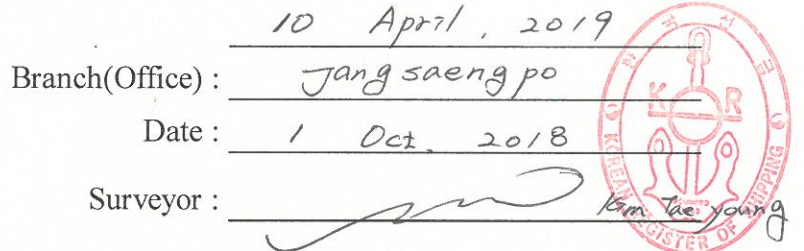 10 April, 2019
Branch(Office) : Jang saeng po
Date : 1 Oct. 2018
Surveyor : Kim Tae young
K R
KOREAN REGISTER OF SHIPPING